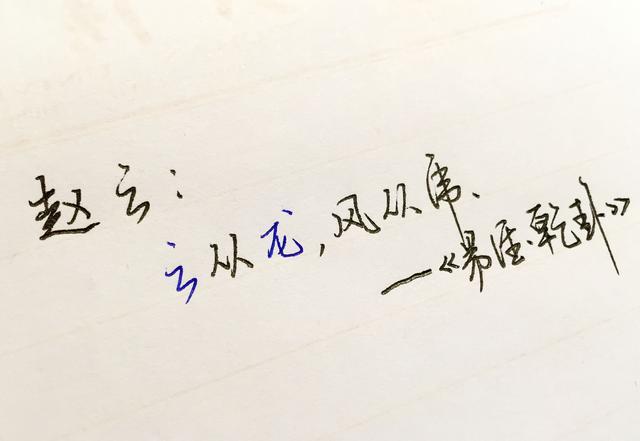 赵云：
云从龙，风从虎、
—《易经·乾卦》